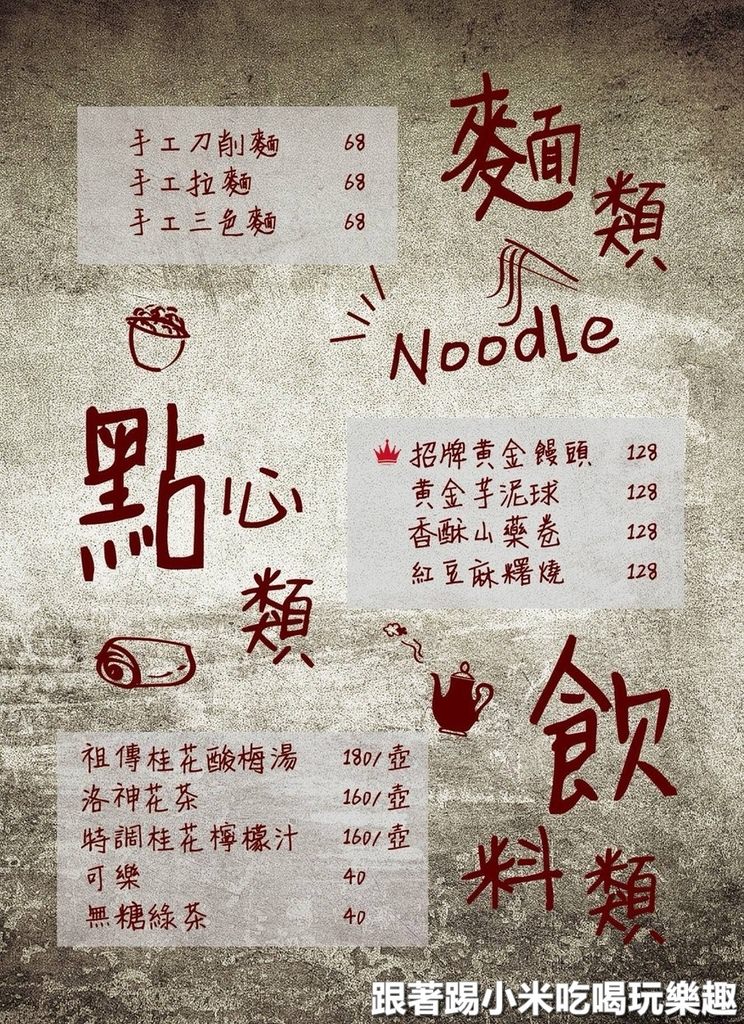 麵類
Noodle
手工刀削麵 68
手工拉麵 68
手工三色麵 68
點心類
招牌黃金饅頭 128
黃金芋泥球 128
香酥山藥卷 128
紅豆麻糬燒 128
飲料類
祖傳桂花酸梅湯 180/壺
洛神花茶 160/壺
特調桂花檸檬汁 160/壺
可樂 40
無糖綠茶 40
跟著踢小米吃喝玩樂趣